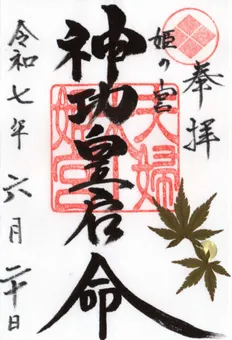 奉拝
姫の宮
神功皇后命
令和七年六月二十日
夫婦
姫宮